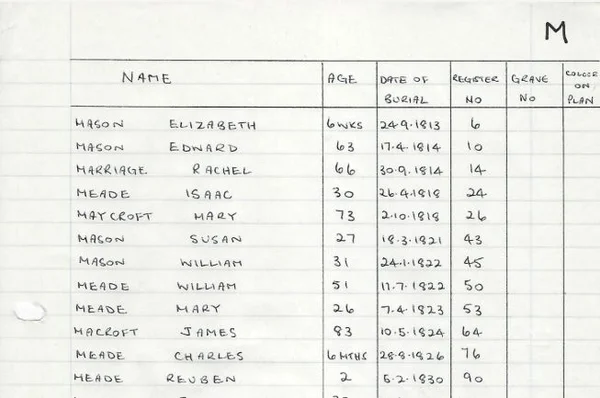 M
NAME AGE DATE OF BURIAL REGISTER NO GRAVE NO COLOUR ON PLAN
MASON ELIZABETH 6 WKS 24.9.1813 6
MASON EDWARD 63 17.4.1814 10
MARRIAGE RACHEL 66 30.9.1814 14
MEADE ISAAC 30 26.4.1818 24
MAYCROFT MARY 73 2.10.1818 26
MASON SUSAN 27 18.3.1821 43
MASON WILLIAM 31 24.1.1822 45
MEADE WILLIAM 51 11.7.1822 50
MEADE MARY 26 7.4.1823 53
MACROFT JAMES 83 10.5.1824 64
MEADE CHARLES 6 MTHS 28.8.1826 76
MEADE REUBEN 2 5.2.1830 90